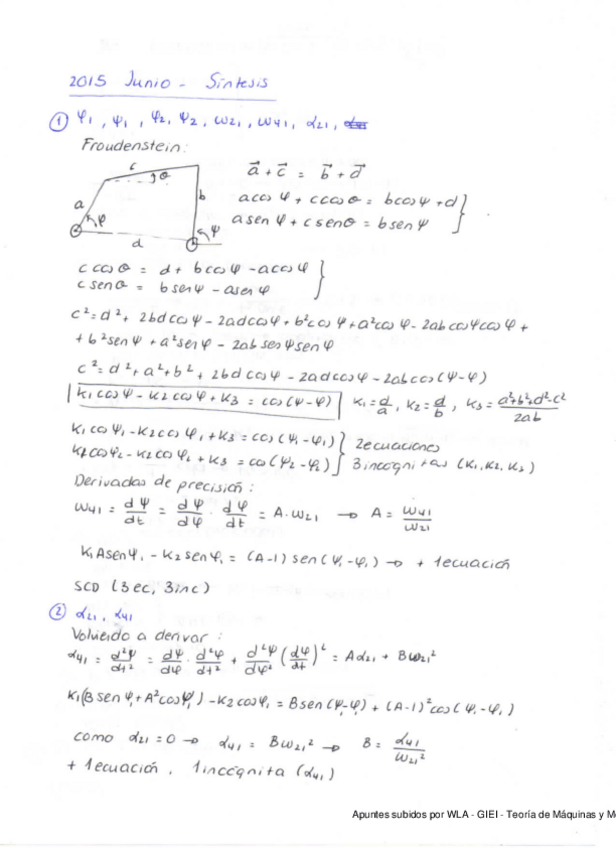 2015 Junio - Síntesis
① φ₁, ψ₁, φ₂, ψ₂, ω₂₁, ω₄₁, α₂₁,
Froudenstein:
c
θ
a
b
φ
ψ
d
a⃗ + c⃗ = b⃗ + d⃗
a cos φ + c cos θ = b cos ψ + d
a sen φ + c sen θ = b sen ψ
c cos θ = d + b cos ψ - a cos φ
c sen θ = b sen ψ - a sen φ
c² = d² + 2bd cos ψ - 2ad cos φ + b² cos ψ + a² cos φ - 2ab cos ψ cos φ +
+ b² sen ψ + a² sen φ - 2ab sen ψ sen φ
c² = d² + a² + b² + 2bd cos ψ - 2ad cos φ - 2ab cos (ψ - φ)
K₁ cos ψ - K₂ cos φ + K₃ = cos (ψ - φ) K₁ = d/a, K₂ = d/b, K₃ = a²+b²+d²-c²/2ab
K₁ cos ψ₁ - K₂ cos φ₁ + K₃ = cos (ψ₁ - φ₁) } 2 ecuaciones
K₁ cos ψ₂ - K₂ cos φ₂ + K₃ = cos (ψ₂ - φ₂) } 3 incognitas (K₁, K₂, K₃)
Derivadas de precisión:
ω₄₁ = dψ/dt = dψ/dφ · dφ/dt = A·ω₂₁ → A = ω₄₁/ω₂₁
K₁ A sen ψ₁ - K₂ sen φ₁ = (A-1) sen (ψ₁ - φ₁) → + 1 ecuación
SCD (3 ec, 3 inc)
② α₂₁, α₄₁
Volviendo a derivar:
α₄₁ = d²ψ/dt² = dψ/dφ · d²φ/dt² + d²ψ/dφ² (dφ/dt)² = Aα₂₁ + Bω₂₁²
K₁(B sen ψ₁ + A² cos ψ₁) - K₂ cos φ₁ = B sen (ψ₁ - φ₁) + (A-1)² cos (ψ₁ - φ₁)
como α₂₁ = 0 → α₄₁ = Bω₂₁² → B = α₄₁/ω₂₁²
+ 1 ecuación, 1 incógnita (α₄₁)
Apuntes subidos por WLA - GIEI - Teoría de Máquinas y M